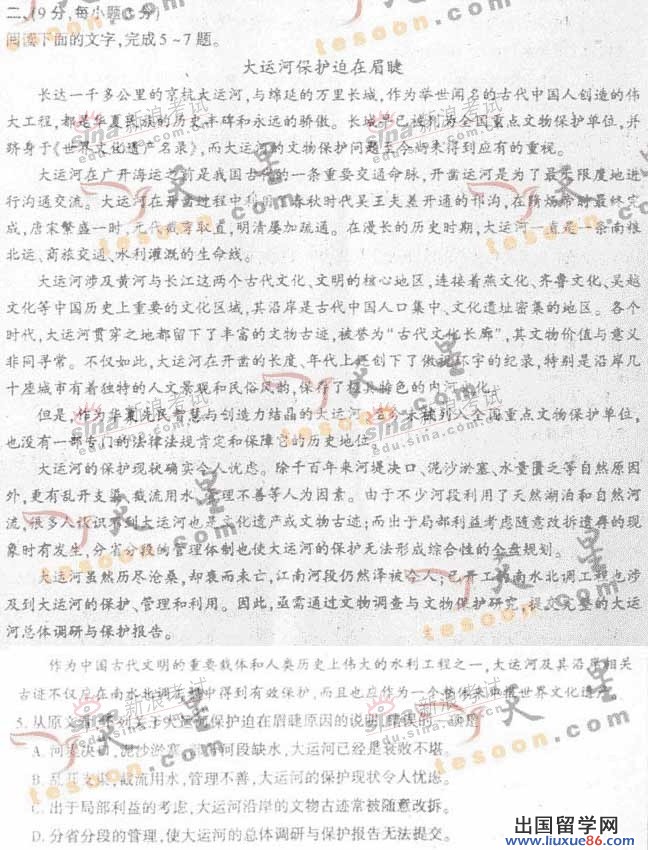 二、(9分,每小题3分)
阅读下面的文字,完成5~7题。
大运河保护迫在眉睫
长达一千多公里的京杭大运河,与绵延的万里长城,作为举世闻名的古代中国人创造的伟
大工程,都是华夏民族的历史丰碑和永远的骄傲。长城早已被列为全国重点文物保护单位,并
跻身于《世界文化遗产名录》,而大运河的文物保护问题至今尚未得到应有的重视。
大运河在广开海运之前是我国古代的一条重要交通命脉,开凿运河是为了最大限度地进
行沟通交流。大运河在开凿过程中利用了春秋时代吴王夫差开通的邗沟,在隋炀帝时最终完
成,唐宋繁盛一时,元代截弯取直,明清屡加疏通。在漫长的历史时期,大运河一直是一条南粮
北运、商旅交通、水利灌溉的生命线。
大运河涉及黄河与长江这两个古代文化、文明的核心地区,连接着燕文化、齐鲁文化、吴越
文化等中国历史上重要的文化区域,其沿岸是古代中国人口集中、文化遗址密集的地区。各个
时代,大运河贯穿之地都留下了丰富的文物古迹,被誉为“古代文化长廊”,其文物价值与意义
非同寻常。不仅如此,大运河在开凿的长度、年代上还创下了傲视环宇的纪录,特别是沿岸几
十座城市有着独特的人文景观和民俗风韵,保存了极其特色的内河文化。
但是,作为华夏先民智慧与创造力结晶的大运河,至今未被列入全国重点文物保护单位,
也没有一部专门的法律法规肯定和保障它的历史地位。
大运河的保护现状确实令人忧虑。除千百年来河堤决口、泥沙淤塞、水量匮乏等自然原因
外,更有乱开支渠、截流用水、管理不善等人为因素。由于不少河段利用了天然湖泊和自然河
流,很多人认识不到大运河也是文化遗产或文物古迹;而出于局部利益考虑随意改拆遗存的现
象时有发生,分省分段的管理体制也使大运河的保护无法形成综合性的全盘规划。
大运河虽然历尽沧桑,却衰而未亡,江南河段仍然泽被今人;已开工的南水北调工程也涉
及到大运河的保护、管理和利用。因此,亟需通过文物调查与文物保护研究,提交完整的大运
河总体调研与保护报告。
作为中国古代文明的重要载体和人类历史上伟大的水利工程之一,大运河及其沿岸相关
古迹不仅应在南水北调工程中得到有效保护,而且也应作为一个整体来申报世界文化遗产。
5.从原文看,下列关于大运河保护迫在眉睫原因的说明,错误的一项是
A.河堤决口,泥沙淤塞,河段缺水,大运河已经是衰败不堪。
B.乱开支渠,截流用水,管理不善,大运河的保护现状令人忧虑。
C.出于局部利益的考虑,大运河沿岸的文物古迹常被随意改拆。
D.分省分段的管理,使大运河的总体调研与保护报告无法提交。
出国留学网
www.liuxue86.com